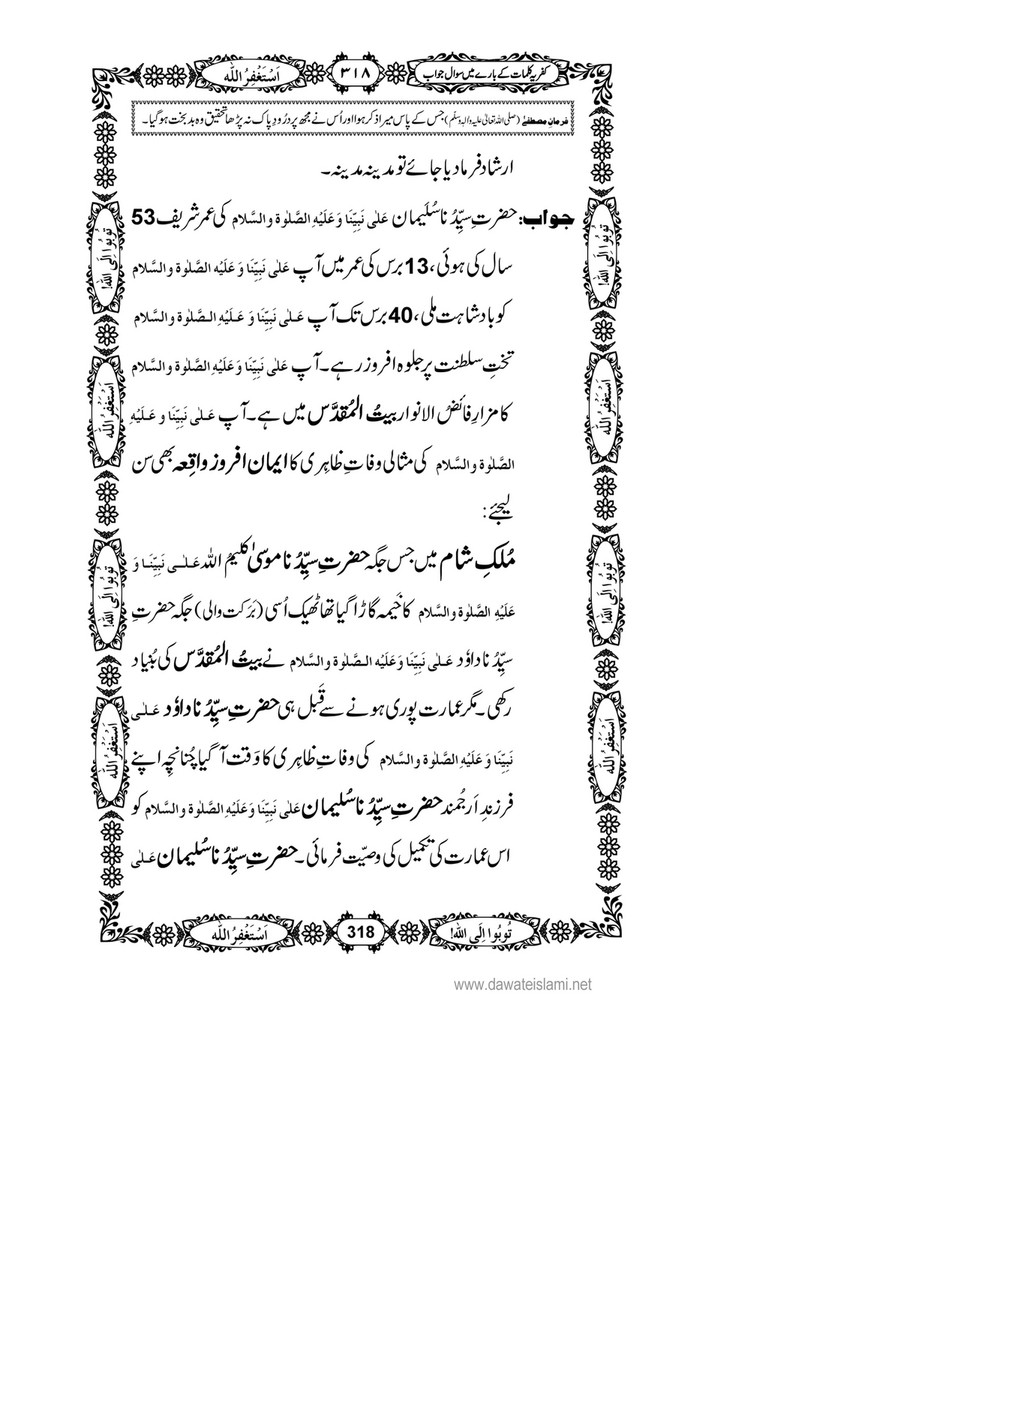 کفریہ کلمات کے بارے میں سوال جواب ۳۱۸ اَسْتَغْفِرُ اللّٰه
فرمانِ مصطفےٰ (صلی اللہ تعالیٰ علیہ والہ وسلم) جس کے پاس میرا ذکر ہوا اور اُس نے مجھ پر دُرُودِ پاک نہ پڑھا تحقیق وہ بد بخت ہو گیا۔
ارشاد فرما دیا جائے تو مدینہ مدینہ۔
جواب: حضرتِ سیِّدُنا سُلَیمان عَلٰی نَبِیِّنَا وَعَلَیْہِ الصَّلٰوۃ والسَّلام کی عمر شریف 53
سال کی ہوئی، 13 برس کی عمر میں آپ عَلٰی نَبِیِّنَا وَ عَلَیْہ الصَّلٰوۃ والسَّلام
کو بادشاہت ملی، 40 برس تک آپ عَـلٰی نَبِیِّنَا وَ عَـلَیْہِ الـصَّلٰوۃ والسَّلام
تختِ سلطنت پر جلوہ افروز رہے۔ آپ عَلٰی نَبِیِّنَا وَعَلَیْہِ الصَّلٰوۃ والسَّلام
کا مزارِ فائضُ الانوار بیتُ الْمُقدَّس میں ہے۔ آپ عَـلٰی نَبِیِّنَا و عَـلَیْہِ
الصَّلٰوۃ والسَّلام کی مثالی وفاتِ ظاہِری کا ایمان افروز واقِعہ بھی سن
لیجئے:
مُلکِ شام میں جس جگہ حضرتِ سیِّدُنا موسیٰ کلیمُ اللّٰہ عَلٰـی نَبِیِّنَـا وَ
عَلَیْہِ الصَّلٰوۃ والسَّلام کا خَیمہ گاڑا گیا تھا ٹھیک اُسی (بَرَکت والی) جگہ حضرتِ
سیِّدُنا داوٗد عَـلٰی نَبِیِّنَا وَعَلَیْہ الـصَّلٰوۃ والسَّلام نے بیتُ الْمُقدَّس کی بُنیاد
رکھی۔ مگر عمارت پوری ہونے سے قَبل ہی حضرتِ سیِّدُنا داوٗد عَـلٰی
نَبِیِّنَا وَعَلَیْہِ الصَّلٰوۃ والسَّلام کی وفاتِ ظاہِری کا وَقت آگیا چُنانچِہ اپنے
فرزندِ اَرجُمند حضرتِ سیِّدُنا سُلیمان عَلٰی نَبِیِّنَا وَعَلَیْہِ الصَّلٰوۃ والسَّلام کو
اس عمارت کی تکمیل کی وصیّت فرمائی۔ حضرتِ سیِّدُنا سُلیمان عَـلٰی
تُوبُوا اِلَی اللّٰه! اَسْتَغْفِرُ اللّٰه
تُوبُوا اِلَی اللّٰه! اَسْتَغْفِرُ اللّٰه
تُوبُوا اِلَی اللّٰه! اَسْتَغْفِرُ اللّٰه
تُوبُوا اِلَی اللّٰه! اَسْتَغْفِرُ اللّٰه
تُوبُوا اِلَی اللّٰه! 318 اَسْتَغْفِرُ اللّٰه
www.dawateislami.net